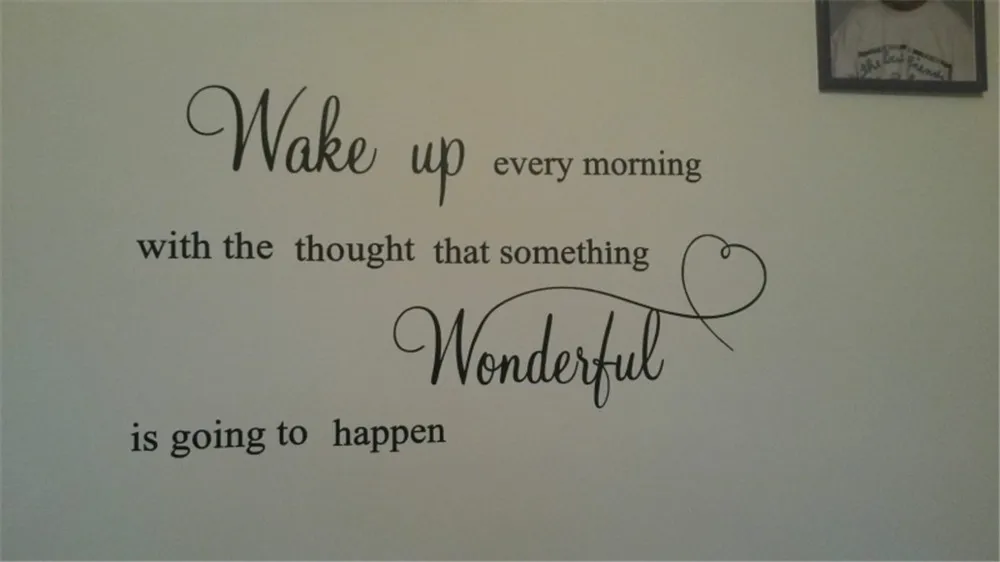 Wake up every morning
with the thought that something
Wonderful
is going to happen